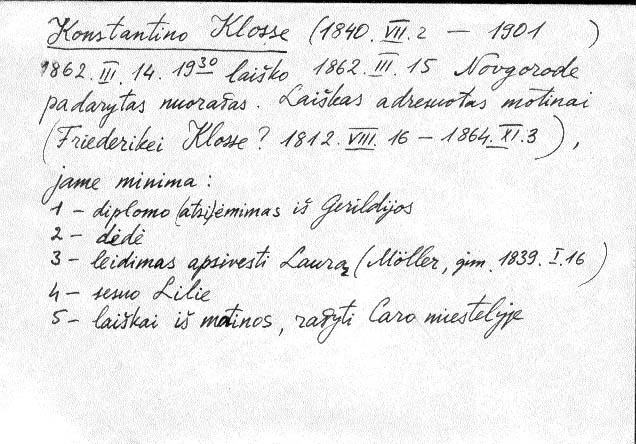 Konstantino Klosse (1840.VII.2 — 1901 )
1862.III.14. 19³⁰ laiško 1862.III.15 Novgorode
padarytas nuorašas. Laiškas adresuotas motinai
(Friederikei Klosse? 1812.VIII.16 — 1864.XI.3),
jame minima:
1 – diplomo (atsi)ėmimas iš Gerildijos
2 – dėdė
3 – leidimas apsivesti Laurą (Möller, gim. 1839.I.16)
4 – sesuo Lilie
5 – laiškai iš motinos, rašyti Caro miestelyje